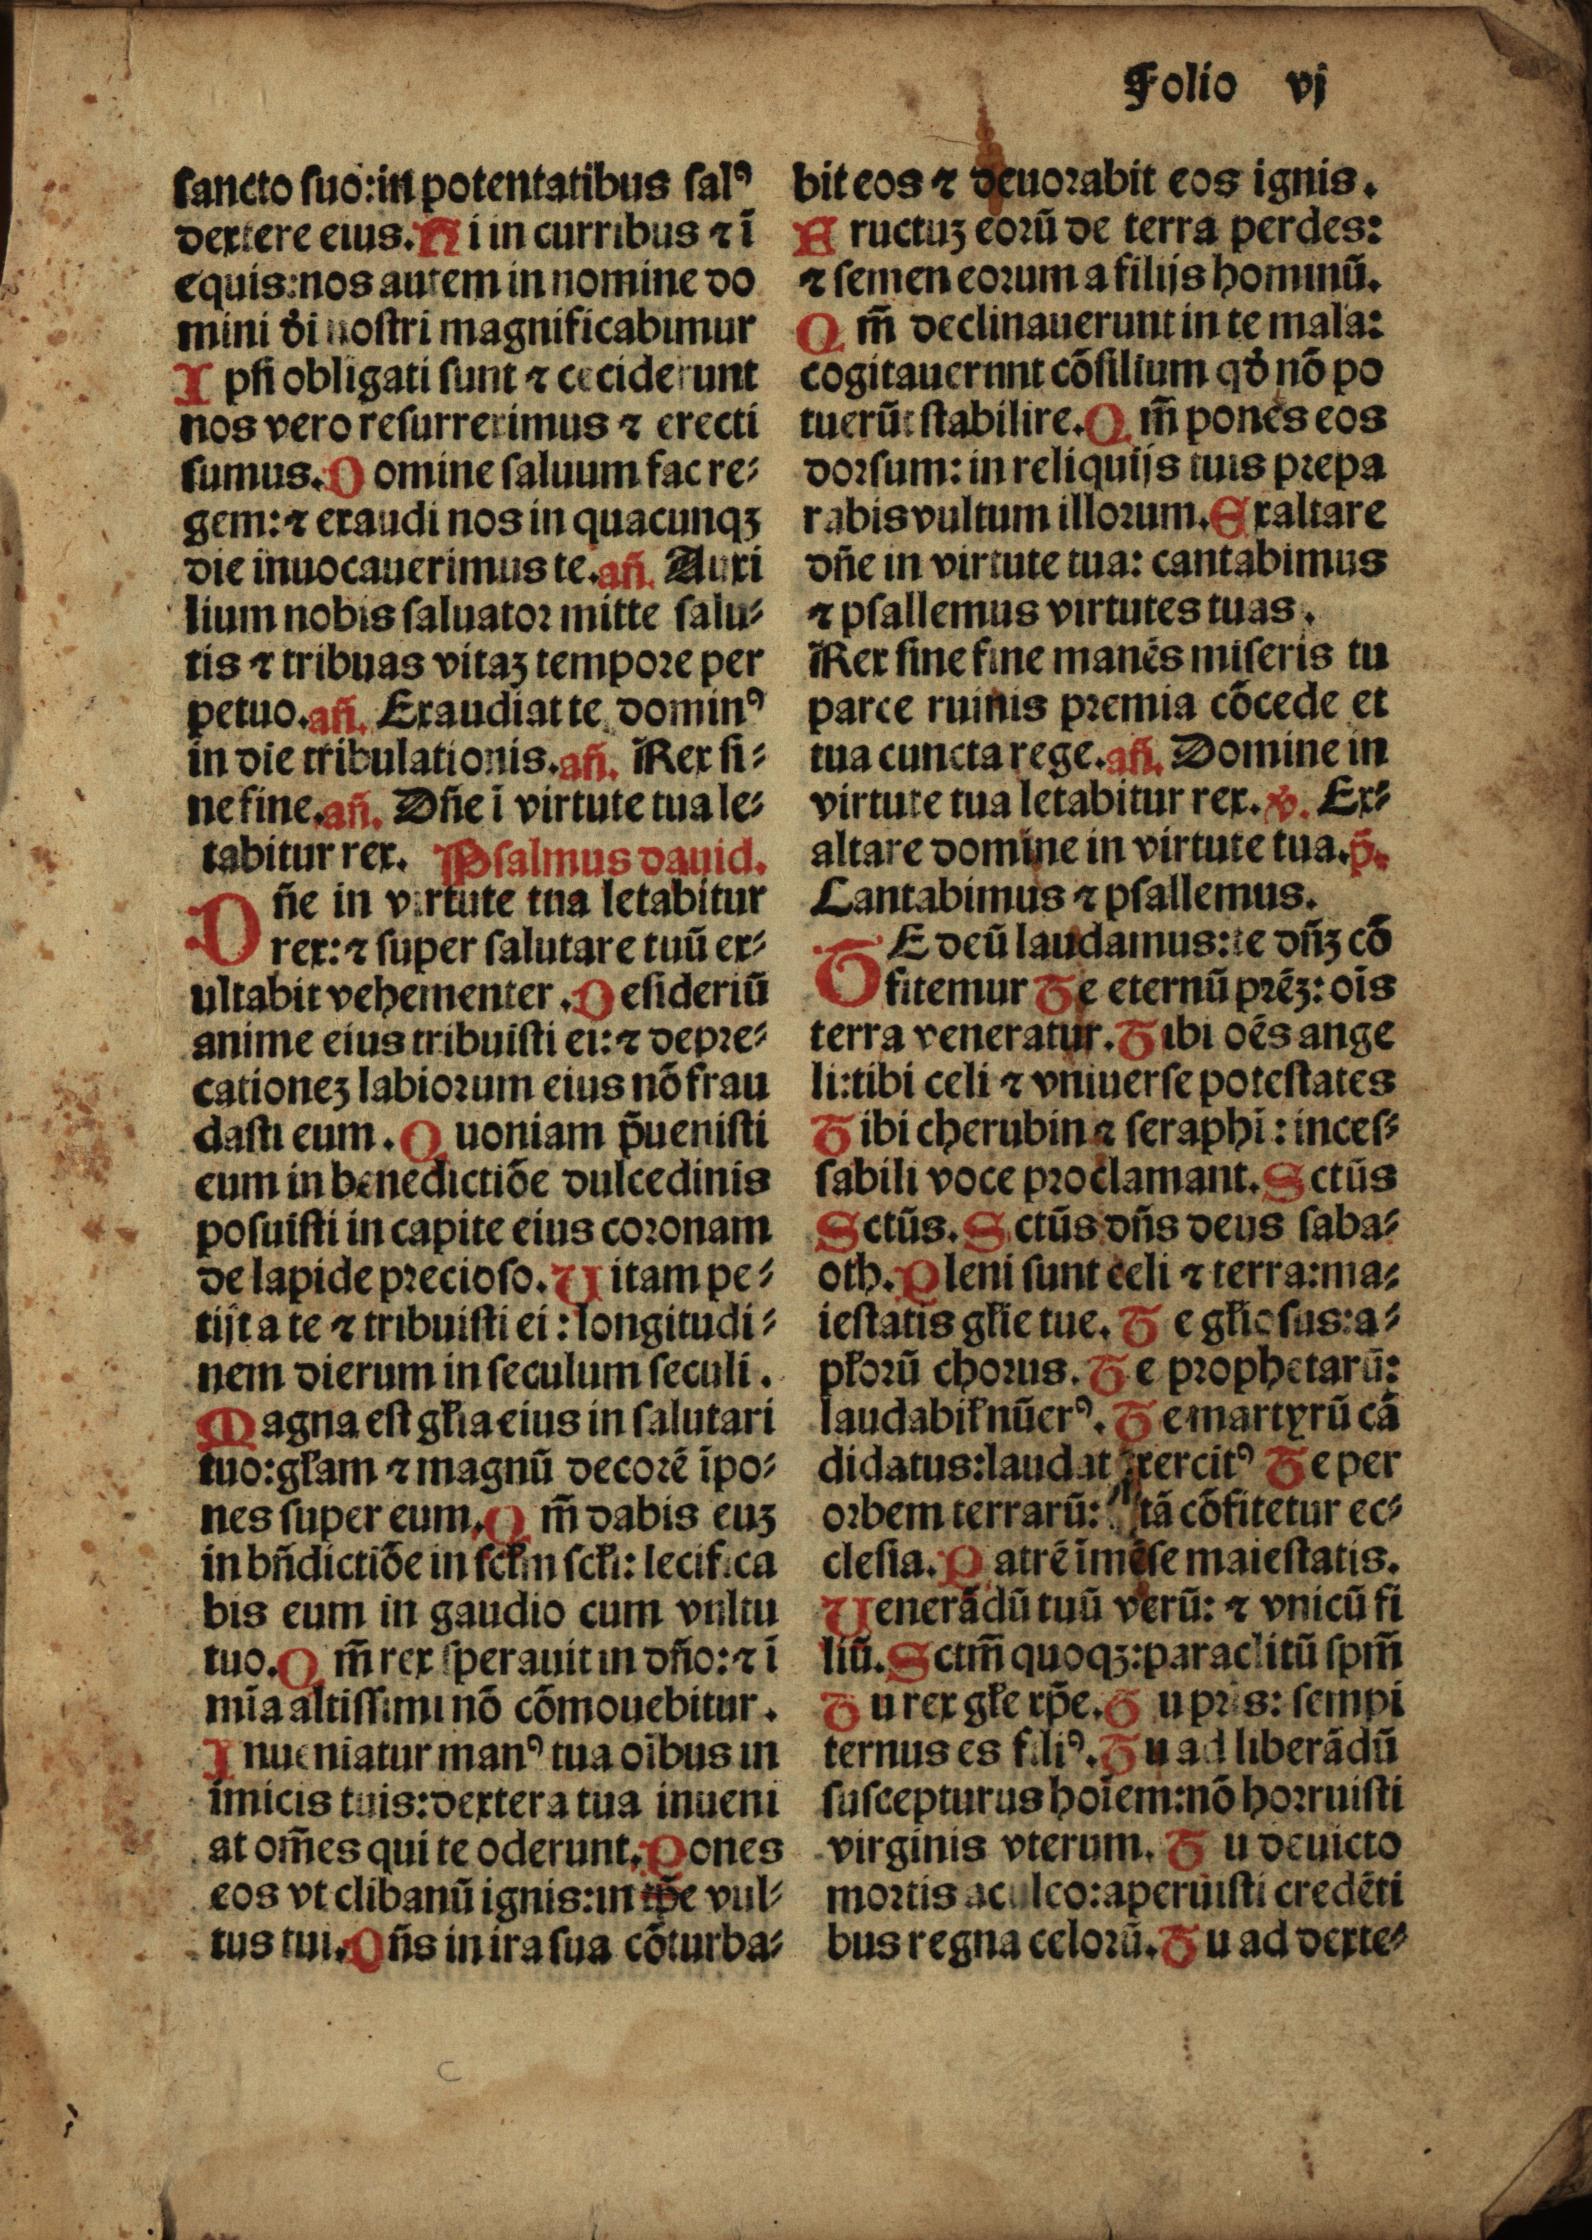 Folio vj
sancto suo:in potentatibus salꝰ
dextere eius. Ni in curribus ⁊ ī
equis:nos autem in nomine do
mini đi nostri magnificabimur
Ipsi obligati sunt ⁊ ceciderunt
nos vero resurreximus ⁊ erecti
sumus. Domine saluum fac re⸗
gem:⁊ exaudi nos in quacunqꝫ
die inuocauerimus te. añ. Auxi
lium nobis saluator mitte salu⸗
tis ⁊ tribuas vitaꝫ tempore per
petuo. añ. Exaudiat te dominꝰ
in die tribulationis. añ. Rex si⸗
ne fine. añ. Dñe ī virtute tua le⸗
tabitur rex. Psalmus dauid.
Dñe in virtute tua letabitur
rex:⁊ super salutare tuū ex⸗
ultabit vehementer. Desideriū
anime eius tribuisti ei:⁊ depre⸗
cationeꝫ labiorum eius nō frau
dasti eum. Quoniam p̄uenisti
eum in benedictiōe dulcedinis
posuisti in capite eius coronam
de lapide precioso. Uitam pe⸗
tijt a te ⁊ tribuisti ei: longitudi⸗
nem dierum in seculum seculi.
Magna est gł̄ia eius in salutari
tuo:gł̄am ⁊ magnū decorē īpo⸗
nes super eum. Qm̄ dabis euꝫ
in bñdictiōe in scłm scłi: letifica
bis eum in gaudio cum vultu
tuo. Qm̄ rex sperauit in dño:⁊ ī
mīa altissimi nō cōmouebitur.
Inueniatur manꝰ tua oībus in
imicis tuis:dextera tua inueni
at om̄es qui te oderunt. Pones
eos vt clibanū ignis:in tp̄e vul⸗
tus tui. Dñs in ira sua cōturba⸗
bit eos ⁊ deuorabit eos ignis.
Fructuꝫ eorū de terra perdes:
⁊ semen eorum a filijs hominū.
Qm̄ declinauerunt in te mala:
cogitauernnt cōsilium qđ nō po
tuerūt stabilire. Qm̄ pones eos
dorsum: in reliquijs tuis prepa
rabis vultum illorum. Exaltare
dñe in virtute tua: cantabimus
⁊ psallemus virtutes tuas.
Rex sine fine manēs miseris tu
parce ruinis premia cōcede et
tua cuncta rege. añ. Domine in
virtute tua letabitur rex. ℣. Ex⸗
altare domine in virtute tua. p̄.
Cantabimus ⁊ psallemus.
TE deū laudamus:te dñꝫ cō
fitemur Te eternū prēꝫ: oīs
terra veneratur. Tibi oēs ange
li:tibi celi ⁊ vniuerse potestates
Tibi cherubin ⁊ seraphī: inces⸗
sabili voce proclamant. Sctūs
Sctūs. Sctūs dñs deus saba⸗
oth. Pleni sunt celi ⁊ terra:ma⸗
iestatis gł̄ie tue. Te gł̄iosus:a⸗
płorū chorus. Te prophetarū:
laudabił nūerꝰ. Te martyrū cā
didatus:laudat exercitꝰ Te per
orbem terrarū: tā cōfitetur ec⸗
clesia. Patrē īmēse maiestatis.
Uenerādū tuū verū: ⁊ vnicū fi
liū. Sctm̄ quoqꝫ:paraclitū spm̄
Tu rex gł̄e xp̄e. Tu pris: sempi
ternus es filiꝰ. Tu ad liberādū
suscepturus hoīem:nō horruisti
virginis vterum. Tu deuicto
mortis aculeo:aperuisti credēti
bus regna celorū. Tu ad dexte⸗